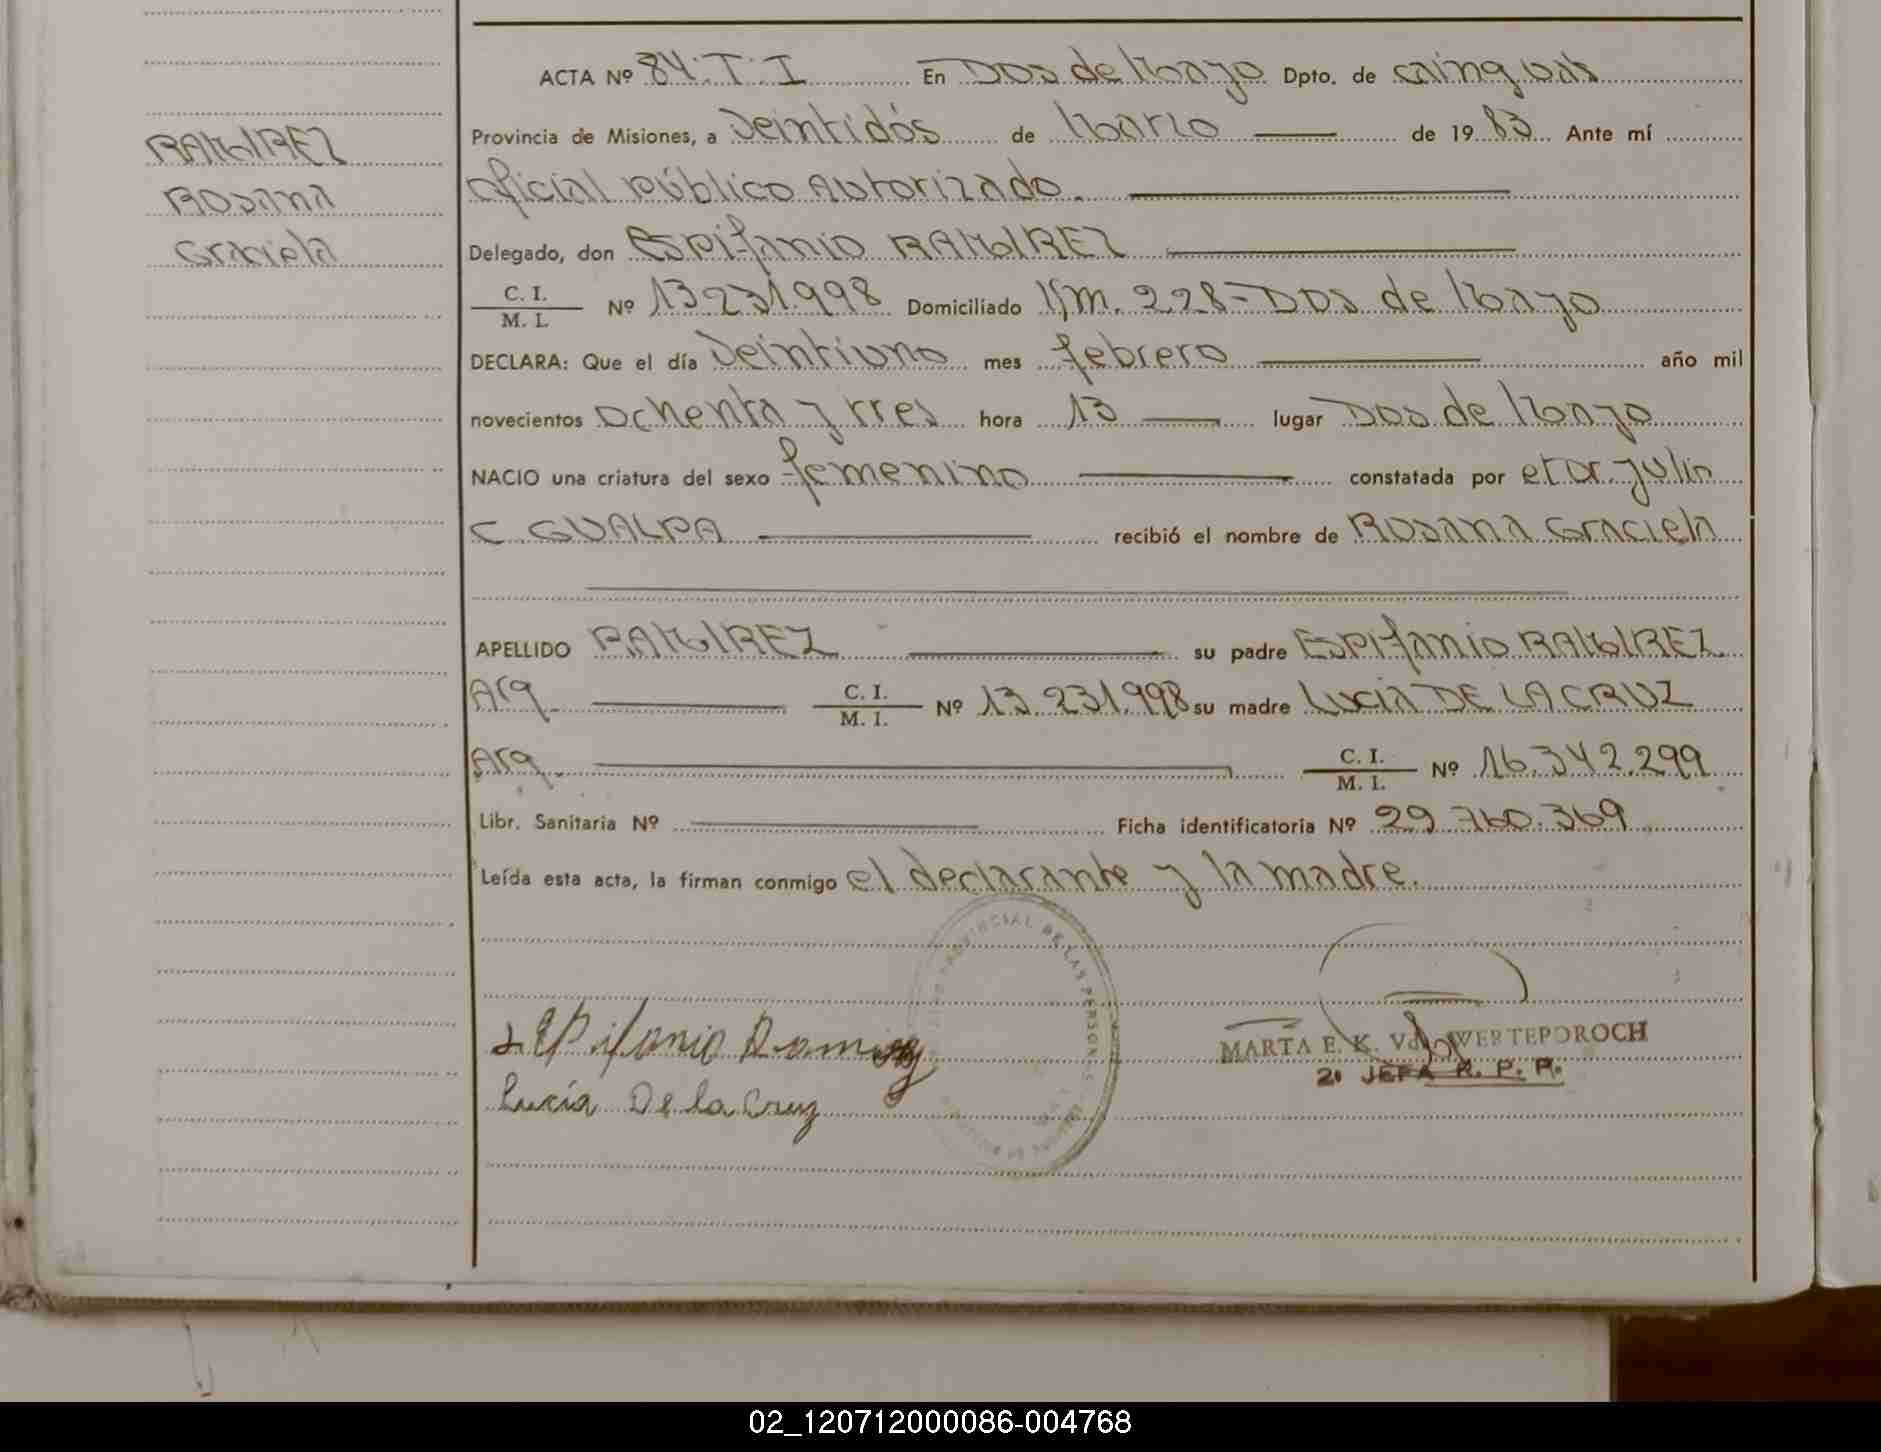 RAMIREZ
Rosana
Graciela
ACTA Nº 84.T.I En Dos de Mayo Dpto. de cainguás
Provincia de Misiones, a Veintidós de Marzo de 1983 Ante mí
Oficial Público Autorizado.
Delegado, don ESPifanio RAMIREZ
C. I.
M. I. Nº 13.231.998 Domiciliado Km. 228-Dos de Mayo
DECLARA: Que el día Veintiuno mes febrero año mil
novecientos Ochenta y tres hora 13 lugar Dos de Mayo
NACIO una criatura del sexo femenino constatada por el Dr. Julin
C. GUALPA recibió el nombre de Rosana Graciela
APELLIDO RAMIREZ su padre ESPifanio RAMIREZ
Arq. C. I. M. I. Nº 13.231.998 su madre LUCIA DE LA CRUZ
Arq. C. I. M. I. Nº 16.342.299
Libr. Sanitaria Nº Ficha identificatoria Nº 29.760.369
Leída esta acta, la firman conmigo el declarante y la madre.
PROVINCIAL DE LAS PERSONAS
Epifanio Ramirez
Lucía De la Cruz
MARTA E. K. V WERTEPOROCH
2ª JEFA R. P. P.
02_120712000086-004768